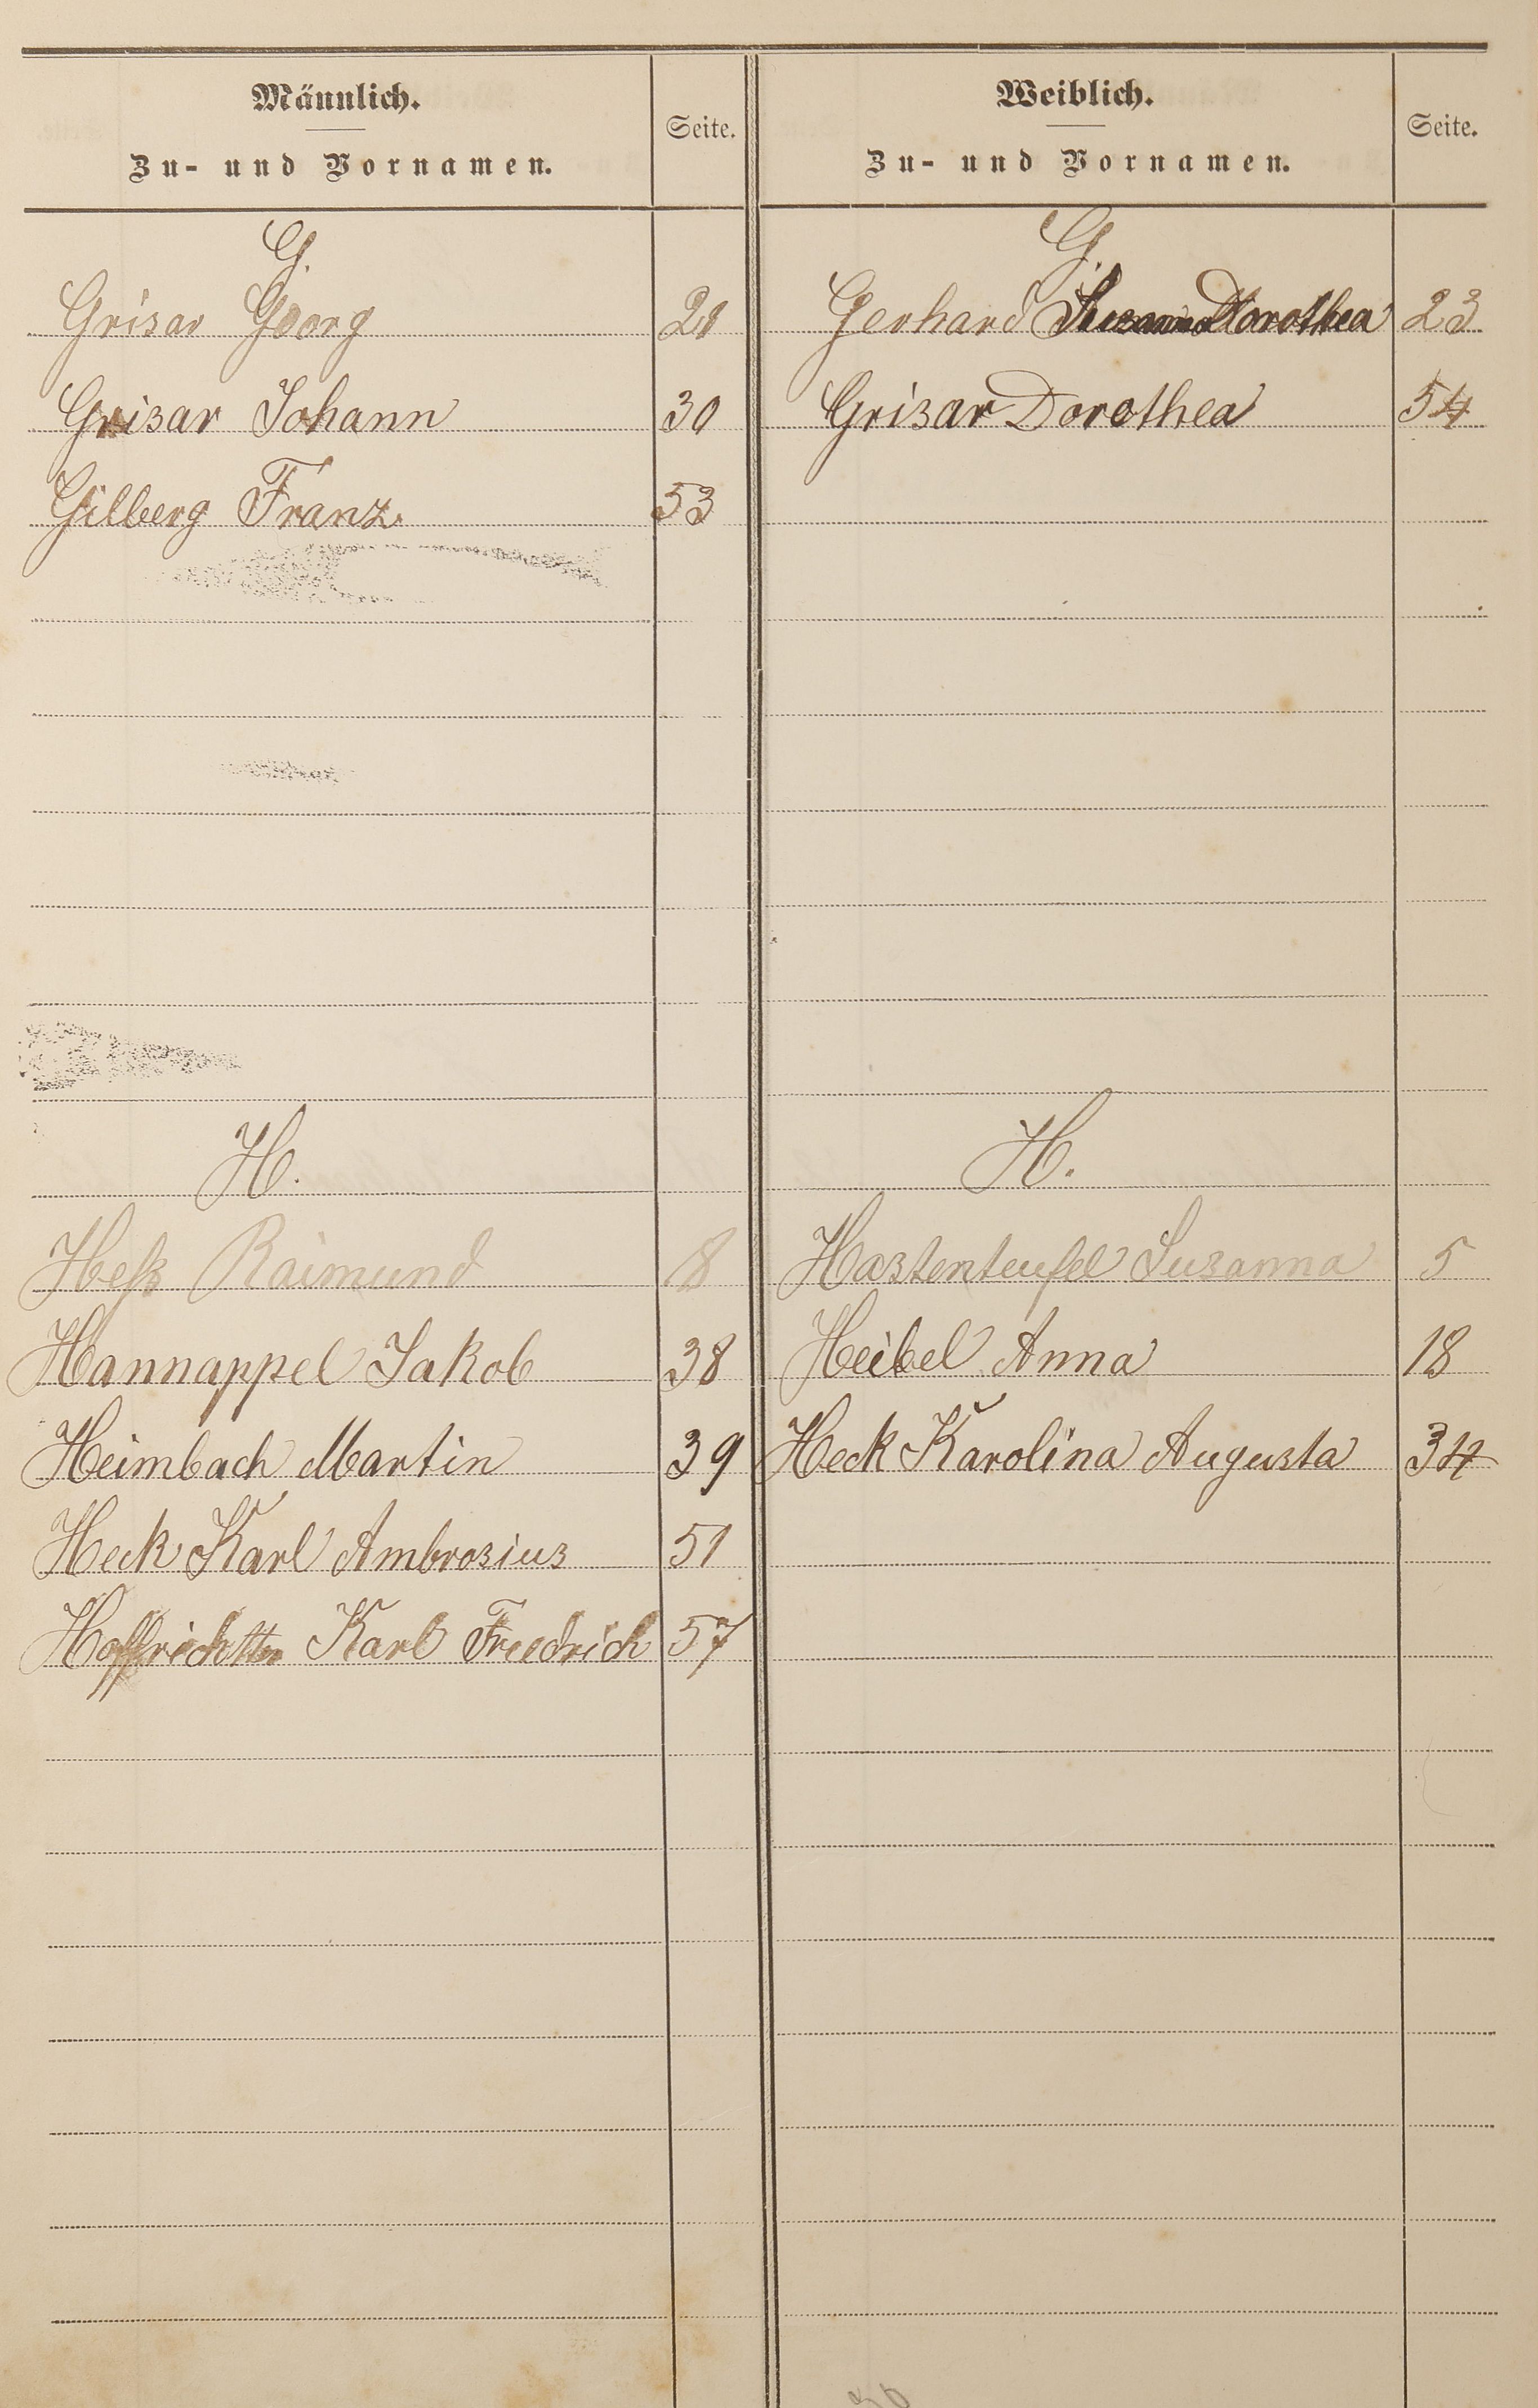 Männlich.
Zu- und Vornamen.
Seite.
G.
Grisar Georg 21
Grisar Johann 30
Gilberg Franz. 53
H.
Heß Raimund 8
Hannappel Jakob 38
Heimbach Martin 39
Heck Karl Ambrosius 51
Hoffrichter Karl Friedrich 57
Weiblich.
Zu- und Vornamen.
Seite.
G.
Gerhard Susanna Dorothea 23
Grisar Dorothea 54
H.
Hastenteufel Susanna 5
Heibel Anna 18
Heck Karolina Augusta 34